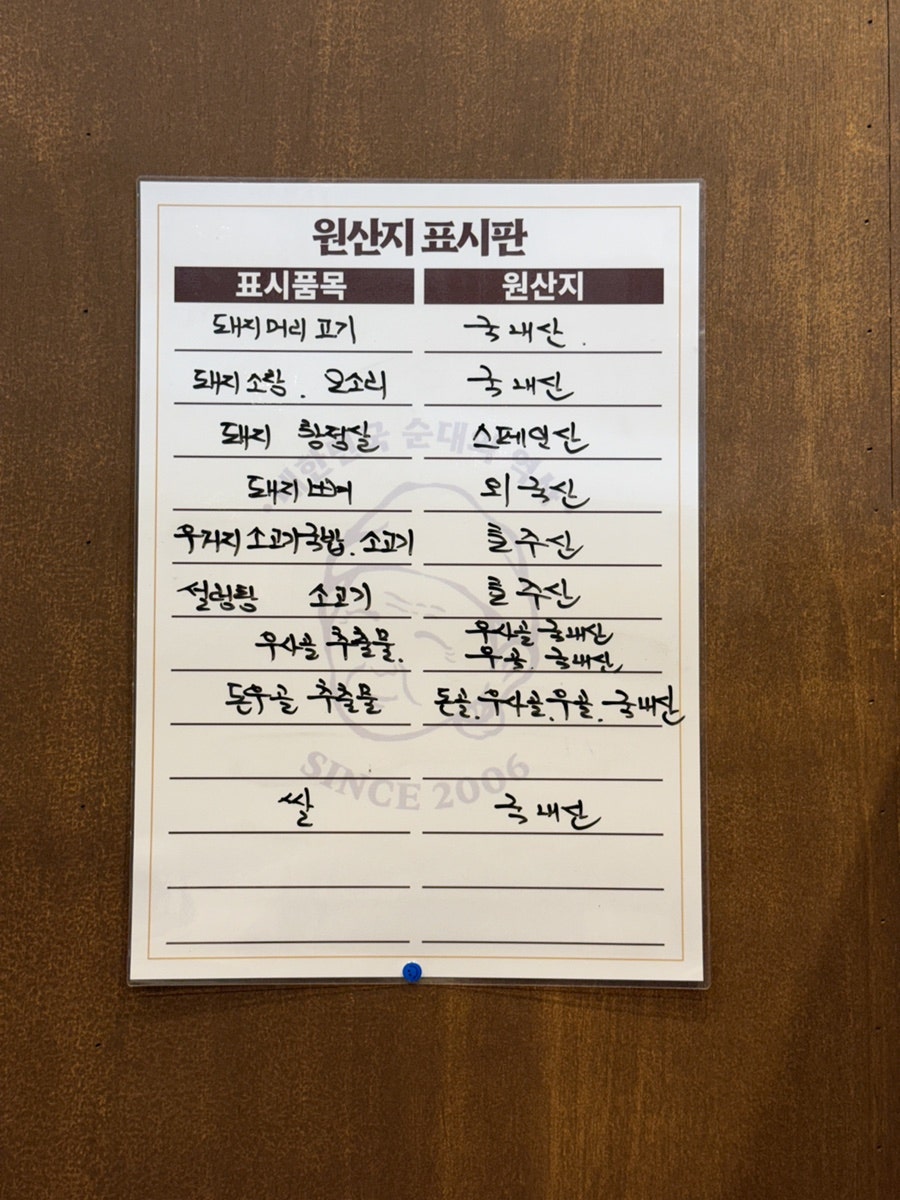 원산지 표시판
표시품목 원산지
돼지머리 고기 국내산.
돼지 소창. 오소리 국내산
돼지 황금살 스페인산
돼지 뼈 외국산
우거지 소고기국밥. 소고기 호주산
설렁탕 소고기 호주산
우사골 추출물. 우사골 국내산
우골. 국내산
돈우골 추출물 돈골.우사골.우골.국내산
쌀 국내산
대한민국 순대의 역사
SINCE 2006